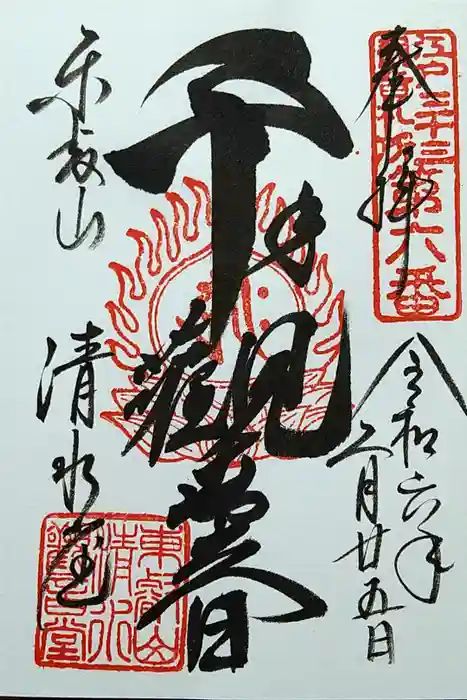 江戸三十三
観音札所第六番
奉拝
令和六年
二月廿五日
千手
觀世音
東叡山
清水堂
東叡山
清水
觀音堂